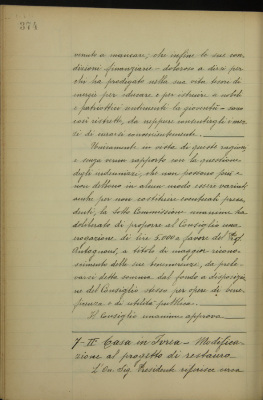 374
venuto a mancare; che infine le sue con-
dizioni finanziarie - doloroso a dirsi per
chi ha prodigato nella sua vita tesori di
energia per educare e per istruire a nobili
e patriottici sentimenti la gioventù - sono
così ristrette, da neppure consentirgli i mez-
zi di curarsi convenientemente.
Unicamente in vista di queste ragioni
e senza verun rapporto con la questione
degli indennizzi, che non possono più e
non debbono in alcun modo essere variati
anche per non costituire eventuali prece-
denti, la Sotto Commissione unanime ha
deliberato di proporre al Consiglio una
erogazione di lire 5.000 a favore del Sig.
a titolo di maggior ricono-
scimento delle sue benemerenze, da prele-
varsi detta somma dal fondo a disposizio-
ne del Consiglio stesso per opere di bene-
ficenza e di utilità pubblica.
Il Consiglio unanime approva.
7 - II° Casa in Torre - Modifica-
zione al progetto di restauro
L'On. Sig. Presidente riferisce